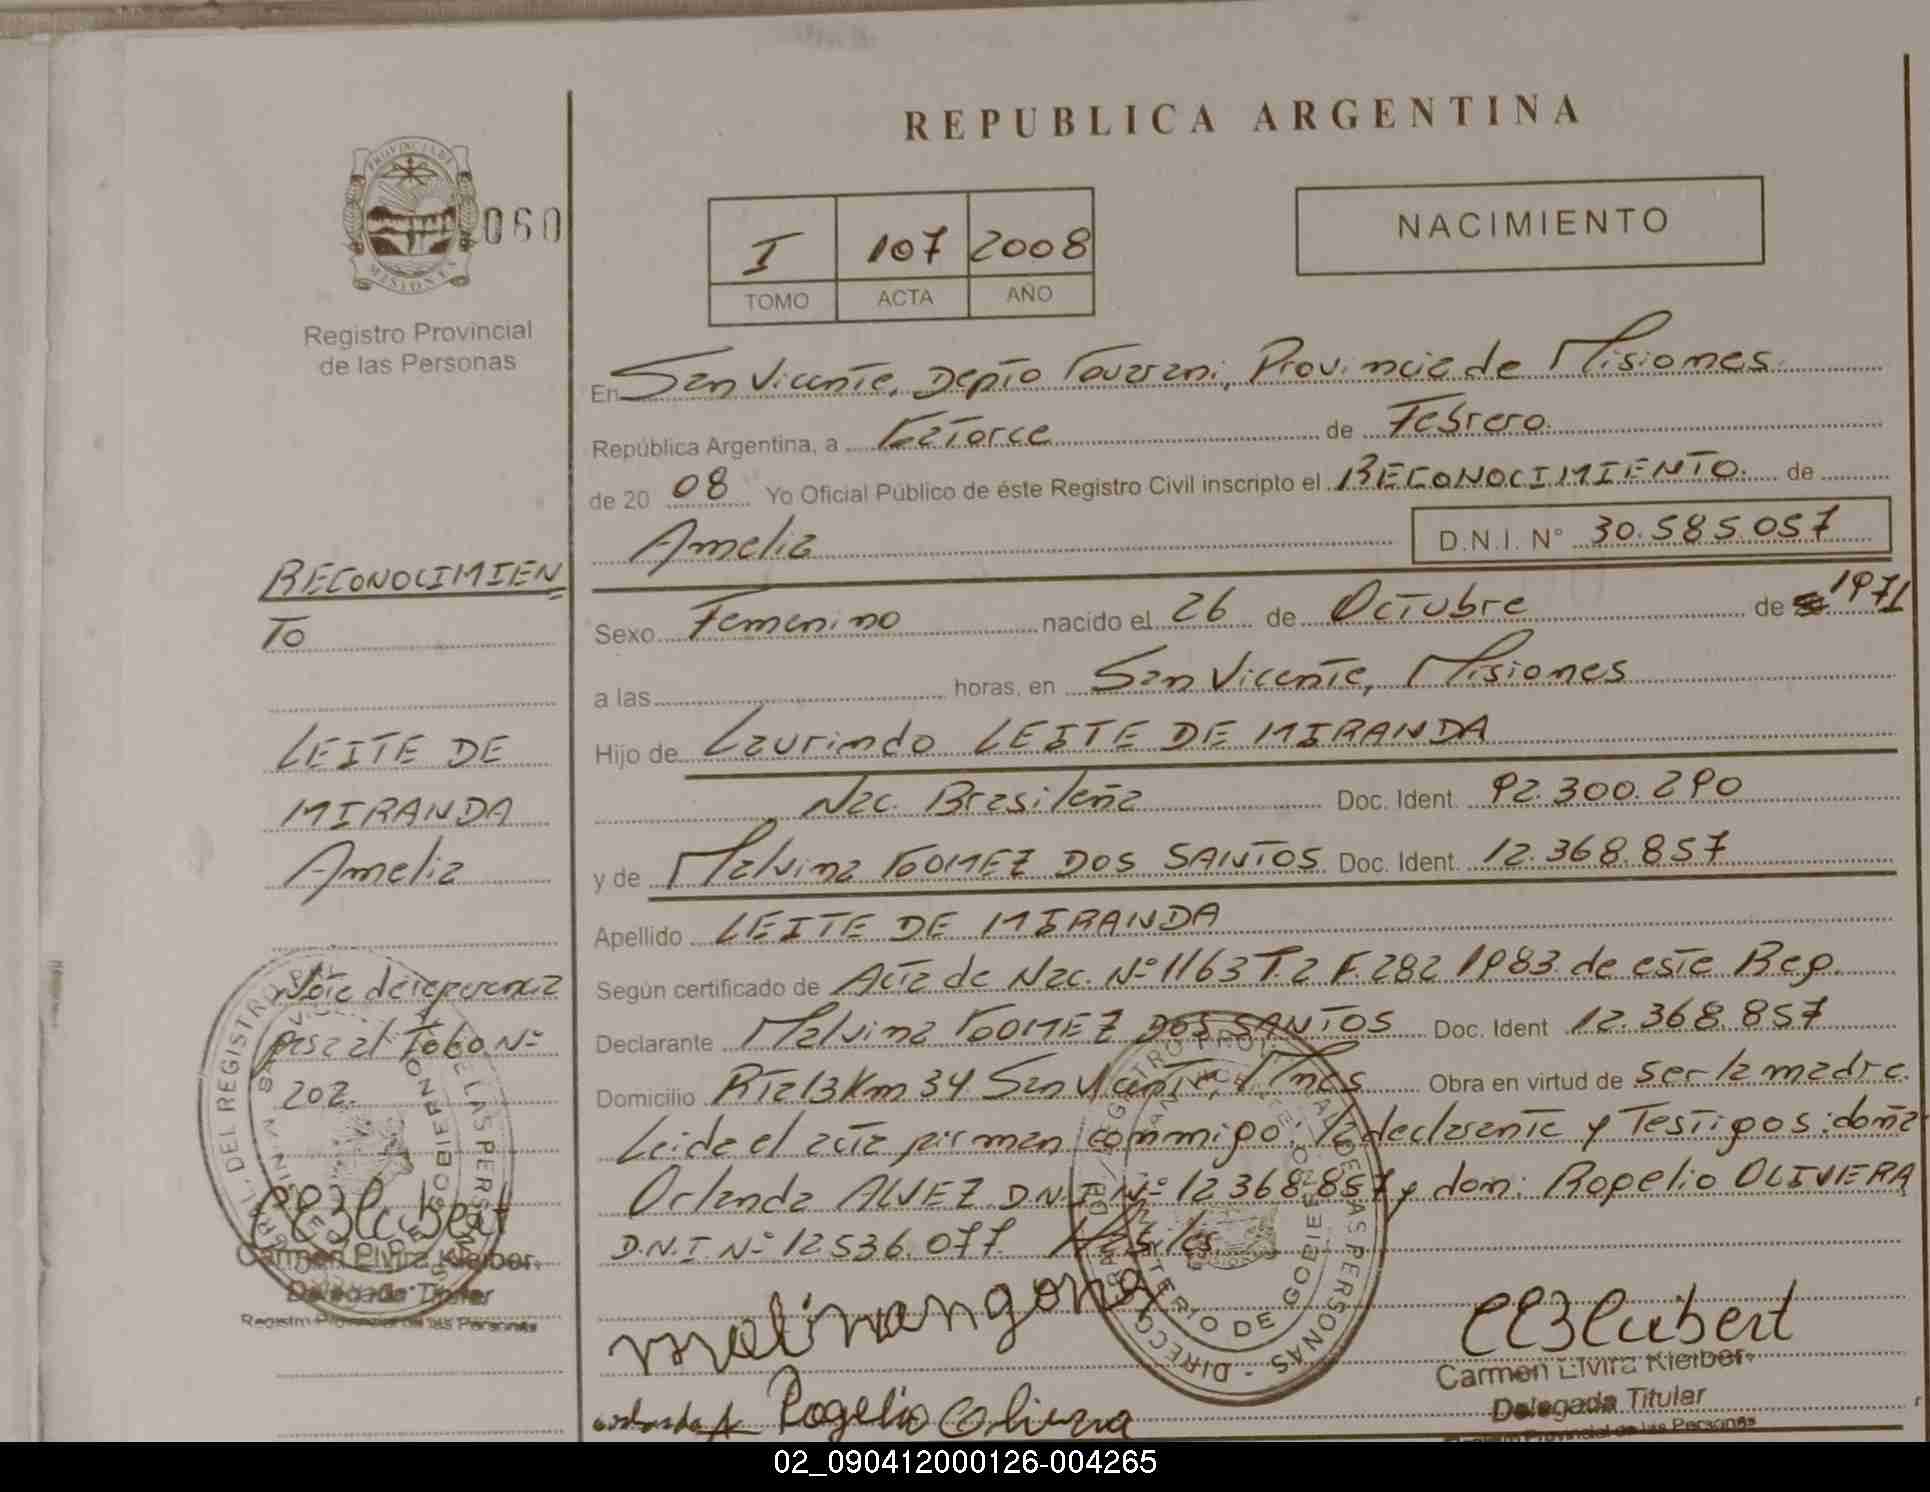 REPUBLICA ARGENTINA
PROVINCIA DE
MISIONES
060
Registro Provincial
de las Personas
I 107 2008
TOMO ACTA AÑO
NACIMIENTO
En San Vicente, Depto Guarani, Provincia de Misiones.
República Argentina, a Catorce de Febrero.
de 20 08 Yo Oficial Público de éste Registro Civil inscripto el RECONOCIMIENTO. de
Amelia D.N.I. N° 30.585.057
Sexo Femenino nacido el 26 de Octubre de 1971
a las horas, en San Vicente, Misiones
Hijo de Laurindo LEITE DE MIRANDA
Nac. Brasileña Doc. Ident. 92.300.290
y de Malvina GOMEZ DOS SANTOS Doc. Ident. 12.368.857
Apellido LEITE DE MIRANDA
Según certificado de Acta de Nac. N° 1163 T. 2 F. 282 1983. de este Reg.
Declarante Malvina GOMEZ DOS SANTOS Doc. Ident 12.368.857
Domicilio Rta 13 Km 34 San Vicente, Mnes Obra en virtud de ser la madre.
Leida el acta firman conmigo: la declarante y Testigos: doña
Orlanda ALVEZ D.N.I. N° 12 368 857 y don: Rogelio OLIVERA
D.N.I. N° 12.536.077.
Rogelio
Carmen Elvira Kleiber
Delegada Titular
Registro Provincial de las Personas
RECONOCIMIEN
TO
LEITE DE
MIRANDA
Amelia
Nota de referencia
pasa al Folio N°
202.
Carmen Elvira Kleiber
Delegada Titular
Registro Provincial de las Personas
02_090412000126-004265